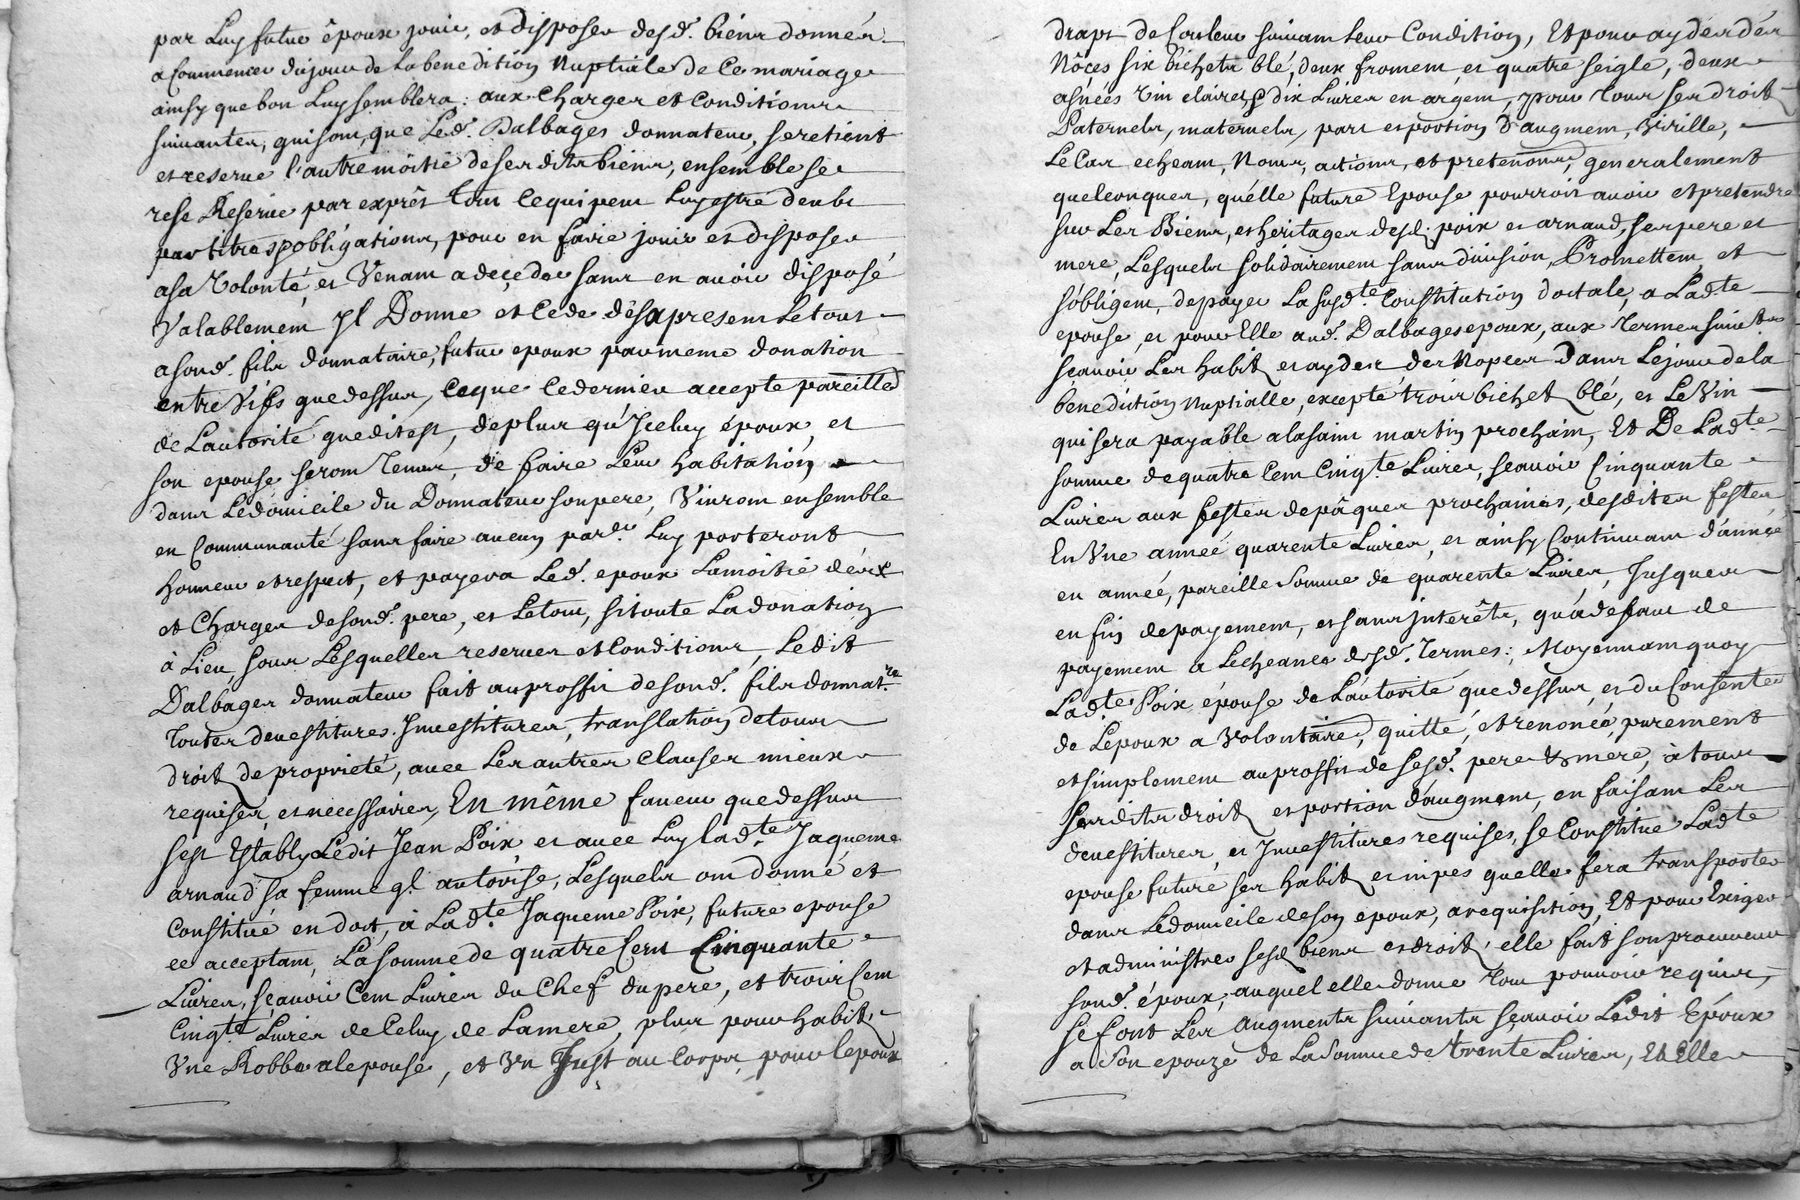 par Luy futur époux jouir, et disposer desd. biens donnés
a Commencer du jour de La benediction Nuptiale de Ce mariage
ainsy que bon Luy semblera: aux Charges et Conditions
suivantes, qui sont, que Led. Dalbages donnateur, se retient
et reserve l'autre moitié de ses dits biens, ensemble se
rese Reserve par exprês Tout Ce qui peut Luy estre deub
par titres obligations, pour en faire jouir et disposer
a sa Volonté, et Venant a deçeder sans en avoir disposé
Valablement Jl Donne et Cede dés apresent Le tout
a sond. fils donnataire, futur epoux par meme donation
entre Vifs que dessus, Ce que Ce dernier accepte pareille
de Lautorité que dit est, de plus qu'Jceluy époux, et
son epouse seront Tenus, de faire Leur habitation
dans Le domicile du Donnateur son pere, Vivront ensemble
en Communauté sans faire aucun par. Luy porteront
honneur et respect, et payera Led. epoux La moitié des
et Charges de sond. pere, et Le tout, si toute La donation
à Lieu, sous Lesquelles reserves et Conditions, Ledit
Dalbages donnateur fait au proffit de sond. fils donnat.re
Toutes devestitures Jnvestitures, translation de tous
droit de proprieté, avec Les autres Clauses mieux
requises, et necessaires, En même faveur que dessus
sest Estably Ledit Jean Poix et avec Luy lad.te Jaqueme
arnaud sa femme q.l autorise, Lesquels ont donné et
Constitué en dot, à Lad.te Jaqueme Poix, future epouse
ce acceptant, La somme de quatre Cent Cinquante
Livres, sçavoir Cent Livres du Chef du pere, et trois Cent
Cinq.te Livres de Celuy de La mere, plus pour habit,
Vne Robbe a lepouse, et Vn Just au Corps, pour lepoux
draps de Couleur suivant Leur Condition, Et pour ayder des
Nôces six bichets blé, deux froment et quatre seigle, deux
asnées Vin claire, & dix Livres en argent, pour Tous ses droit
Paternels, maternels, part et portion d'augment, Virille,
Le Cas echeant, Noms, actions, et pretentions, generalement
quelconques, qu'elle future Epouse pourroit avoir et pretendre
sur Les Biens, et heritages desd. poix et arnaud, ses pere et
mere, Lesquels solidairement sans division, Promettent, et
s'obligent, de payer La susd.te Constitution dotale, a Lad.te
epouse, et pour Elle aud. Dalbages epoux, aux Termes suivts
sçavoir Les habit et ayder des Nopces dans Le jour de la
bénediction Nuptialle, excepté trois bichet blé, et Le Vin
qui sera payable a la saint martin prochain, Et De Lad.te
somme de quatre Cent Cinq.te Livres, sçavoir Cinquante
Livres aux festes de pâques prochaines, desdites festes
En Vne année quarente Livres, et ainsy Continuant d'année
en année, pareille Somme de quarente Livres, Jusques
en fin de payement, et sans jnterêts, qu'à defaut de
payement a Lecheance desd. Termes; Moyennant quoy
Lad.te Poix épouse de Lautorité que dessus, et du Consente
de Lepoux a Volontaire, quitté, et renoncé, purement
et simplement au proffit de sesd. pere & mere, à tous
ses dits droit et portion d'augment, en faisant Les
devestitures, et Jnvestitures requises, se Constitue Lad.te
epouse future ses habit et nipes quelle fera transporter
dans Le domicile de son epoux, a requisition, Et pour Exiger
et administrer sesd. biens et droit, elle fait son procureur
sond. époux, auquel elle donne Tout pouvoir requis,
se font Les Augments suivants sçavoir Ledit Epoux
a son epouze de La Somme de trente Livres, Et Elle